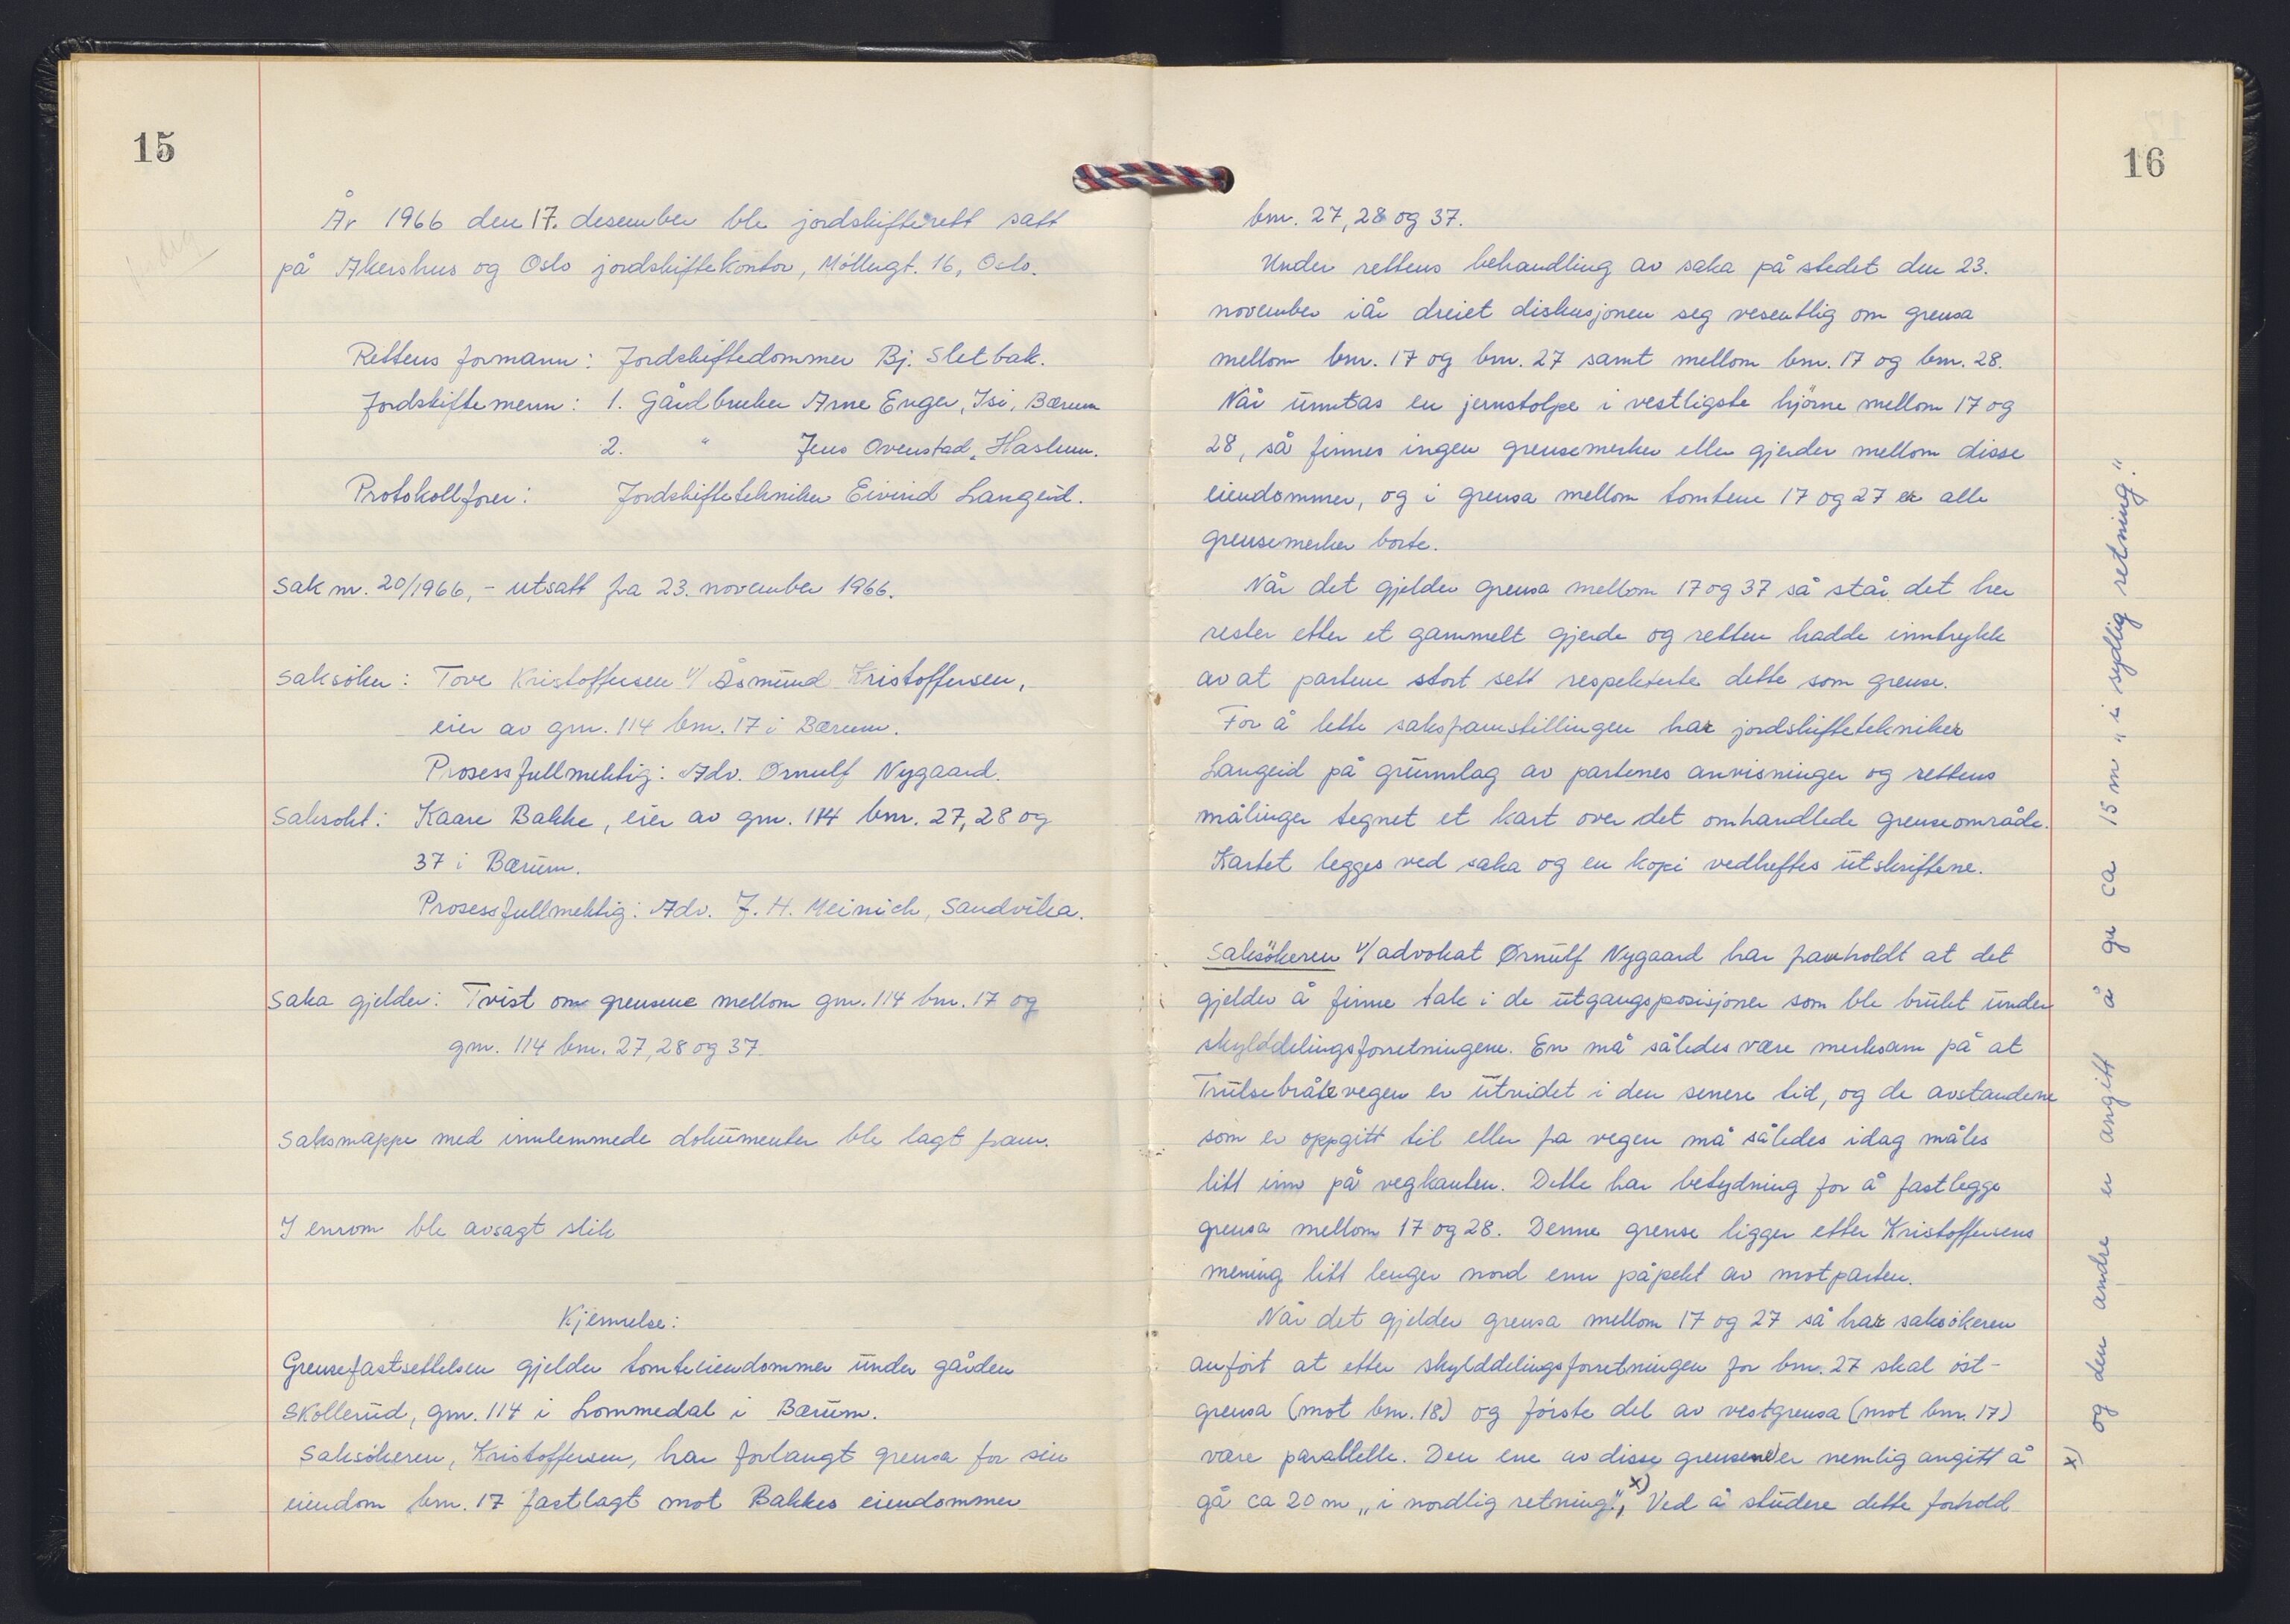 15
År 1966 den 17. desember ble jordskifterett satt
på Akershus og Oslo jordskiftekontor, Møllergt. 16, Oslo.
Rettens formann: Jordskiftedommer Bj. Sletbak.
Jordskiftemenn: 1. Gårdbruker Arne Enger, Isi, Bærum
2. " Jens Ovenstad, Haslum.
Protokollfører: Jordskiftetekniker Eivind Langeid.
Sak nr. 20/1966, - utsatt fra 23. november 1966.
Saksöker: Tove Kristoffersen v/ Åsmund Kristoffersen,
eier av gnr. 114 bnr. 17 i Bærum.
Prosessfullmektig: Adv. Ørnulf Nygaard.
Saksökt: Kaare Bakke, eier av gnr. 114 bnr. 27, 28 og
37 i Bærum.
Prosessfullmektig: Adv. J. H. Meinich, Sandvika.
Saka gjelder: Tvist om grensene mellom gnr. 114 bnr. 17 og
gnr. 114 bnr. 27, 28 og 37.
Saksmappe med innlemmede dokumenter ble lagt fram.
I enrom ble avsagt slik
Kjennelse:
Grensefastsettelsen gjelder tomteeiendommer under gården
Skollerud, gnr. 114 i Lommedal i Bærum.
Saksökeren, Kristoffersen, har forlangt grensa for sin
eiendom bnr. 17 fastlagt mot Bakkes eiendommer
16
bnr. 27, 28 og 37.
Under rettens behandling av saka på stedet den 23.
november iår dreiet diskusjonen seg vesentlig om grensa
mellom bnr. 17 og bnr. 27 samt mellom bnr. 17 og bnr. 28.
Når unntas en jernstolpe i vestligste hjörne mellom 17 og
28, så finnes ingen grensemerker eller gjerder mellom disse
eiendommer, og i grensa mellom tomtene 17 og 27 er alle
grensemerker borte.
Når det gjelder grensa mellom 17 og 37 så står det her
rester etter et gammelt gjerde og retten hadde inntrykk
av at partene stort sett respekterte dette som grense.
For å lette saksframstillingen har jordskiftetekniker
Langeid på grunnlag av partenes anvisninger og rettens
målinger tegnet et kart over det omhandlede grenseområde.
Kartet legges ved saka og en kopi vedheftes utskriftene.
Saksökeren v/ advokat Ørnulf Nygaard har framholdt at det
gjelder å finne tak i de utgangsposisjoner som ble brukt under
skylddelingsforretningene. En må således være merksam på at
Trulsebråtevegen er utvidet i den senere tid, og de avstandene
som er oppgitt til eller fra vegen må således idag måles
litt inn på vegkanten. Dette har betydning for å fastlegge
grensa mellom 17 og 28. Denne grense ligger etter Kristoffersens
mening litt lenger nord enn påpekt av motparten.
Når det gjelder grensa mellom 17 og 27 så har saksökeren
anfört at etter skylddelingsforretningen for bnr. 27 skal öst-
grensa (mot bnr. 18) og förste del av vestgrensa (mot bnr. 17)
være parallelle. Den ene av disse grensene er nemlig angitt å
gå ca 20 m „i nordlig retning", x) Ved å studere dette forhold
x) og den andre er angitt å gå ca 15 m „i sydlig retning".